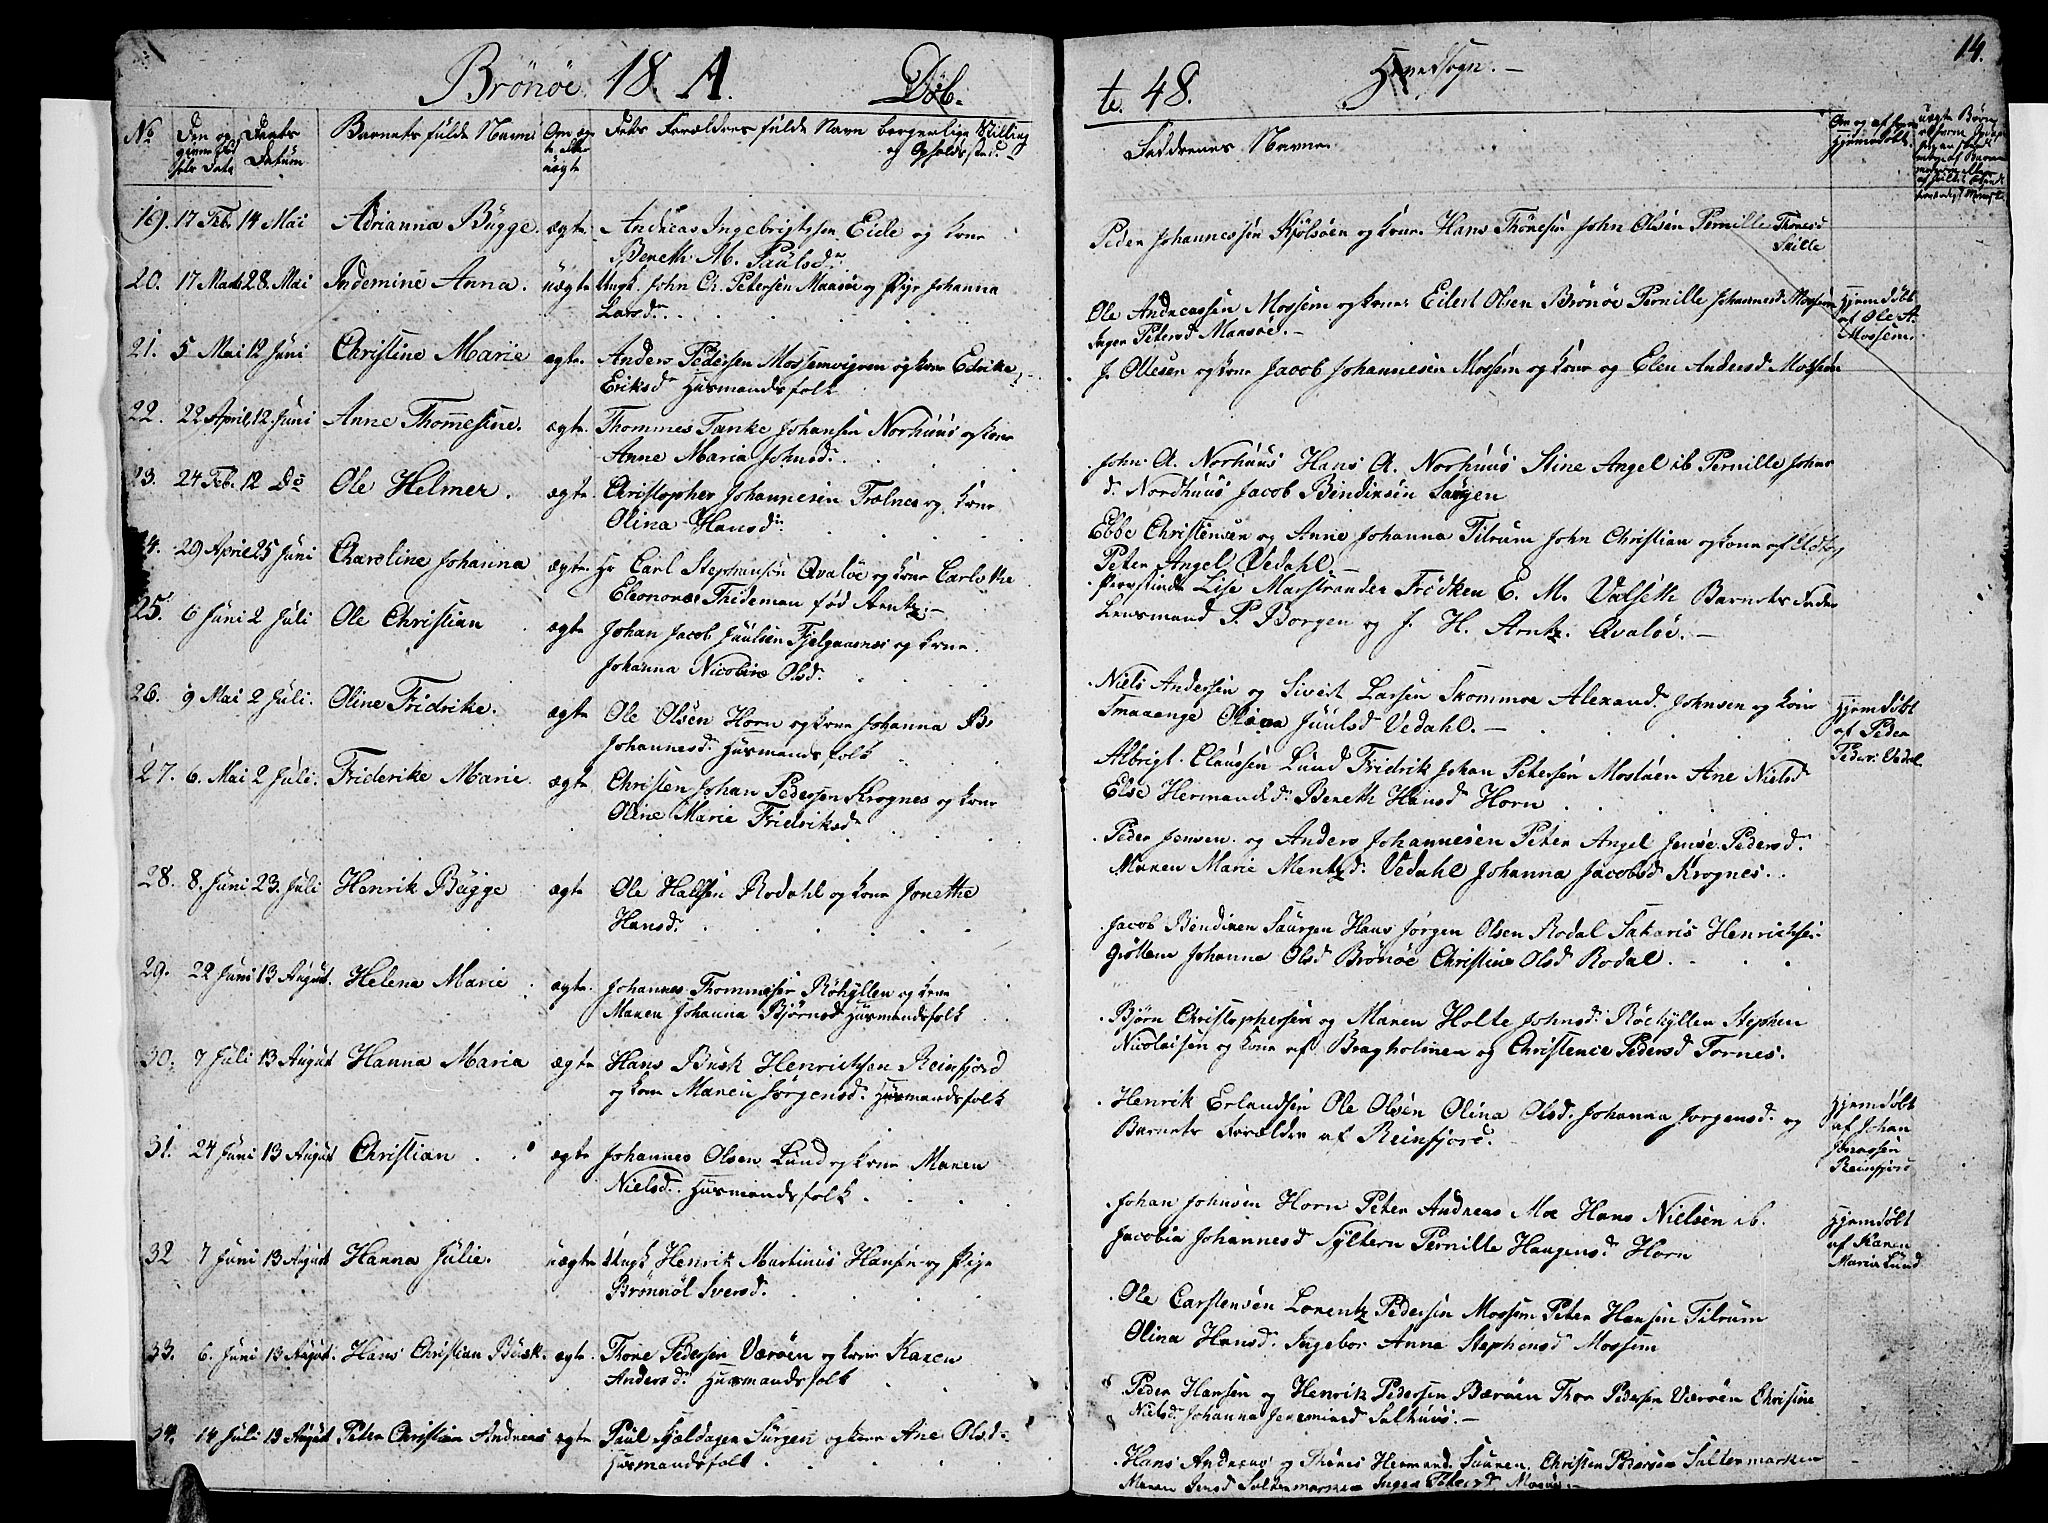 14.
Brönöe 18 A. Döb-
te. 48. Hovedsogn.
No
Den op
givne Fød
sels Data
Daabs
Datum
Barnets fulde Navn
Om æg
te eller
uægte
Dets Forældres fulde Navn borgerlige Stilling
og Opholdssted.
Faddrenes Navne.
19. 17 Feb. 14 Mai Adrianna Bügge. ægte Andreas Ingebrigtsen Eide og kone
Bereth M. Paülsd.
Peder Johannessen og kone. Hans Thönesen John Olsen Pernille
20. 17 Marts 28. Mai Indemine Anna. uægte Ungk. John Ch. Petersen Maasöe og Pige Johanna
Larsd.
Ole Andreassen Mossem og kone Eilert Olsen Brönöe Pernille Johannesd Mossem
Inger Petersd Maasöe.
Hjemdöbt
af Ole A.
Mossem
21. 5 Mai 12 Juni Christine Marie ægte Anders Pedersen Mossemvigen og kone Edrike
Eriksd Husmandsfolk
J. Ollesen og kone Jacob Johannesen Mossem og kone og Elen Andersd Mossem
22. 22 April 12. Juni Anne Thomesine. ægte. Thommes Tanke Johansen Norhuus og kone
Anne Maria Johnsd.
John A. Norhuus Hans A. Norhuus Stine Angel ib Pernille Johns
d. Nordhuus Jacob Bendixsen Saugen
23. 24 Feb. 12 Do Ole Helmer. ægte. Christopher Johannesen Trælnes og kone
Olina Hansd
Ebbe Christensen og Anne Johanna Tilrum John Christian og kone af
Peter Angel Vedahl.
24. 29 April 25 Juni Charoline Johanna ægte Hr Carl Stephansen Qvaløe og kone Carlothe
Eleonore Thideman fød Arntz.
Lise Marstrander Frøken E. M. Valseth Barnets Fader
Lensmand P. Borgen og J. H. Arntz. Qvaløe.
25. 6 Juni 2 Juli Ole Christian ægte Johan Jacob Juulsen og kone
Johanna Nicoline Olsd.
Niels Andersen og Sivert Larsen Skommoe Alexand. Johnsen og kone
Smaaenge Juulsd Vedahl.
Hjemdöbt
af Peder
Peders. Vedal
26. 9 Mai 2 Juli. Oline Fridrike. ægte Ole Olsen Horn og kone Johanna B.
Johannesd. Husmandsfolk
Albrigt Claussen Lund Fridrik Johan Petersen Ane Nielsd
Else Hermansd. Bereth Hansd Horn
27. 6. Mai 2 Juli. Friderike Marie. ægte Christen Johan Pedersen Krognes og kone
Oline Marie Fridriksd
Peder Jensen og Anders Johannesen Peter Angel Pedersd.
Maren Marie Mentzd. Vedahl Johanna Jacobsd Krognes.
28. 8. Juni 23. Juli Henrik Bügge ægte Ole Hallsen Rodahl og kone Jonethe
Hansd.
Jacob Bendixen Saugen Hans Jörgen Olsen Rodal Sakaris Henrichsen
Johanna Olsd Brönöe Christine Olsd Rodal.
29. 22 Juni 13 August. Helena Marie ægte. Johannes Thommesen Röhyllen og kone
Maren Johanna Bjørnsd Husmandsfolk
Bjørn Christophersen og Maren Holte Johnsd. Stephen
Nicolaisen og kone af Bragholmen og Christence Pedersd Tornes.
30. 7 Juli 13 August Hanna Maria ægte Hans Busk Henrichsen Reinfjord
og kone Maren Jørgensd. Husmandsfolk
Henrik Erlandsen Ole Olsen Olina Olsd. Johanna Jorgensd. og
Barnets Forældre af Reinfjord.
Hjemdöbt
af Johan
Jonassen
Reinfjord
31. 24 Juni 13 August Christian ægte Johannes Olsen Lund og kone Maren
Nielsd. Husmandsfolk
Johan Johnsen Horn Peter Andreas Moe Hans Nielsen ib.
Johannesd Sÿltern Pernille Haagensd. Horn
Hjemdöbt
af Karen
Maria Lund
32 7 Juni 13 August Hanna Julie. uægte Ungk Henrik Martinus Hansen og Pige
Iversd.
Ole Carstensen Lorentz Pedersen Mossem Peter Hansen Tilrum
Olina Hansd. Ingebor Anna Stephensd Mossem
33. 6. Juni 13 August. Hans Christian Büsk. ægte. Thore Pedersen Værøen og kone Karen
Andersd. Husmandsfolk
Peder Hansen og Henrik Pedersen Værøen Thor Pedersen Værøen Christine
Nielsd. Johanna Jeremiasd Salhuus.
34. 14 Juli 13 August Peter Christian Andreas ægte Paul og kone Ane Olsd.
Husmandsfolk
Hans Andreas og Thönes Hermand. Christen Pedersen Saltermarken
Maren Jensd Inger Petersd